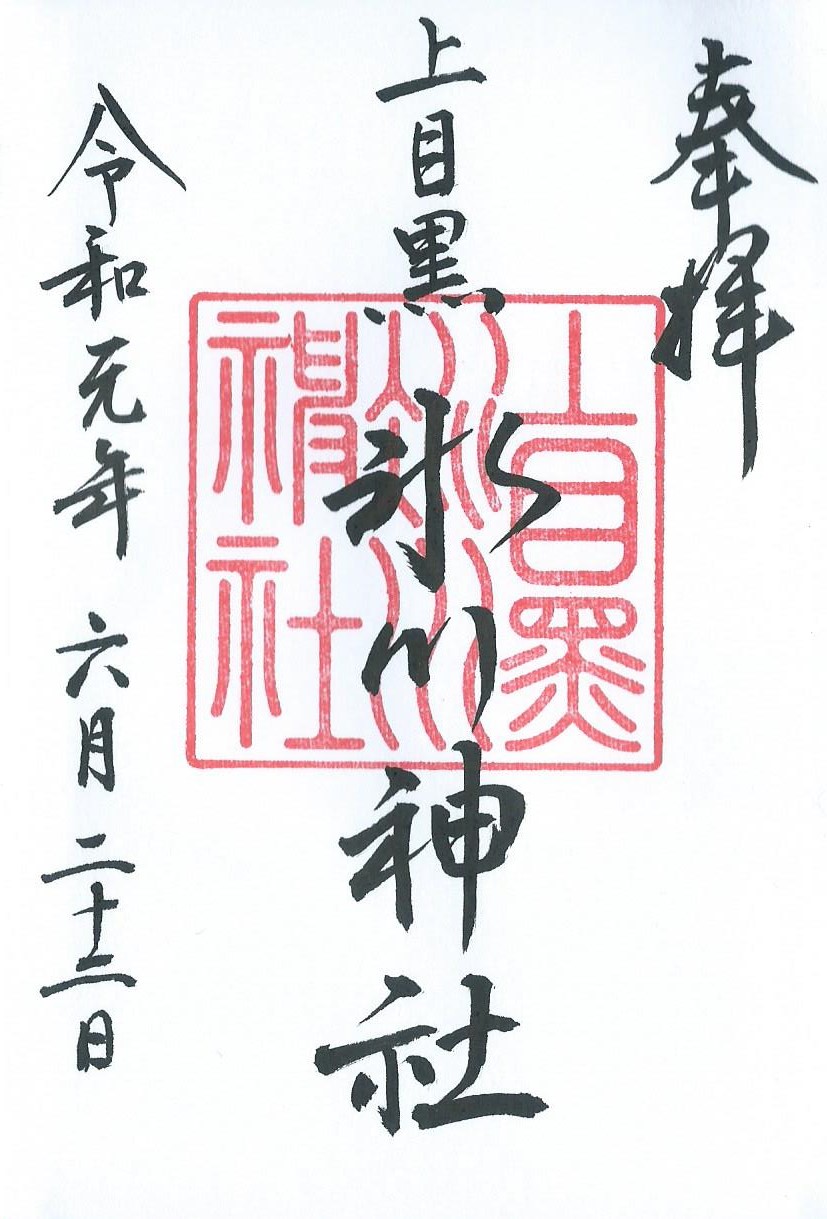 奉拝
上目黒
氷川神社
令和元年 六月 二十三日
上目黒
氷川
神社